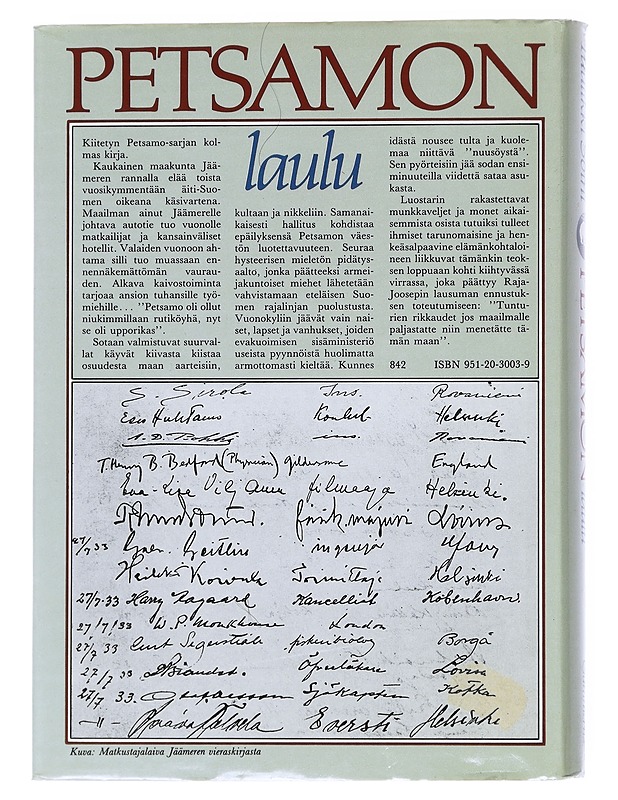 PETSAMON
laulu
Kiitetyn Petsamo-sarjan kol-
mas kirja.
Kaukainen maakunta Jää-
meren rannalla elää toista
vuosikymmentään äiti-Suo-
men oikeana käsivartena.
Maailman ainut Jäämerelle
johtava autotie tuo vuonolle
matkailijat ja kansainväliset
hotellit. Valaiden vuonoon ah-
tama silli tuo muassaan en-
nennäkemättömän vaurau-
den. Alkava kaivostoiminta
tarjoaa ansion tuhansille työ-
miehille... "Petsamo oli ollut
niukimmillaan rutiköyhä, nyt
se oli upporikas".
Sotaan valmistuvat suurval-
lat käyvät kiivasta kiistaa
osuudesta maan aarteisiin,
kultaan ja nikkeliin. Samanai-
kaisesti hallitus kohdistaa
epäilyksensä Petsamon väes-
tön luotettavuuteen. Seuraa
hysteerisen mieletön pidätys-
aalto, jonka päätteeksi armei-
jakuntoiset miehet lähetetään
vahvistamaan eteläisen Suo-
men rajalinjan puolustusta.
Vuonokyliin jäävät vain nai-
set, lapset ja vanhukset, joiden
evakuoimisen sisäministeriö
useista pyynnöistä huolimatta
armottomasti kieltää. Kunnes
idästä nousee tulta ja kuole-
maa niittävä "nuusöystä".
Sen pyörteisiin jää sodan ensi-
minuuteilla viidettä sataa asu-
kasta.
Luostarin rakastettavat
munkkaveljet ja monet aikai-
semmista osista tutuiksi tulleet
ihmiset tarunomaisine ja hen-
keäsalpaavine elämänkohtaloi-
neen liikkuvat tämänkin teok-
sen loppuaan kohti kiihtyvässä
virrassa, joka päättyy Raja-
Joosepin lausuman ennustuk-
sen toteutumiseen: "Tuntu-
rien rikkaudet jos maailmalle
paljastatte niin menetätte tä-
män maan".
842 ISBN 951-20-3003-9
S. Sirola Ins. Rovaniemi
Esko Huhtamo Helsinki
ins. Rovaniemi
T. Henry B. Bedford England
Eva-Lisa Viljanen filmaaja Helsinki.
Lovisa
27/7 33
Heikki Koivula Toimittaja Helsinki
27/7.33 Harry Aagaard Kancellist København.
27/7/33 W. P. Monkhouse London
27/7 33 Curt Segerstråle fiskeribiolog Borgå
27/7 33 Lovisa
27/7 33. Sjökapten Kotka
-"- Eversti Helsinki
Kuva: Matkustajalaiva Jäämeren vieraskirjasta